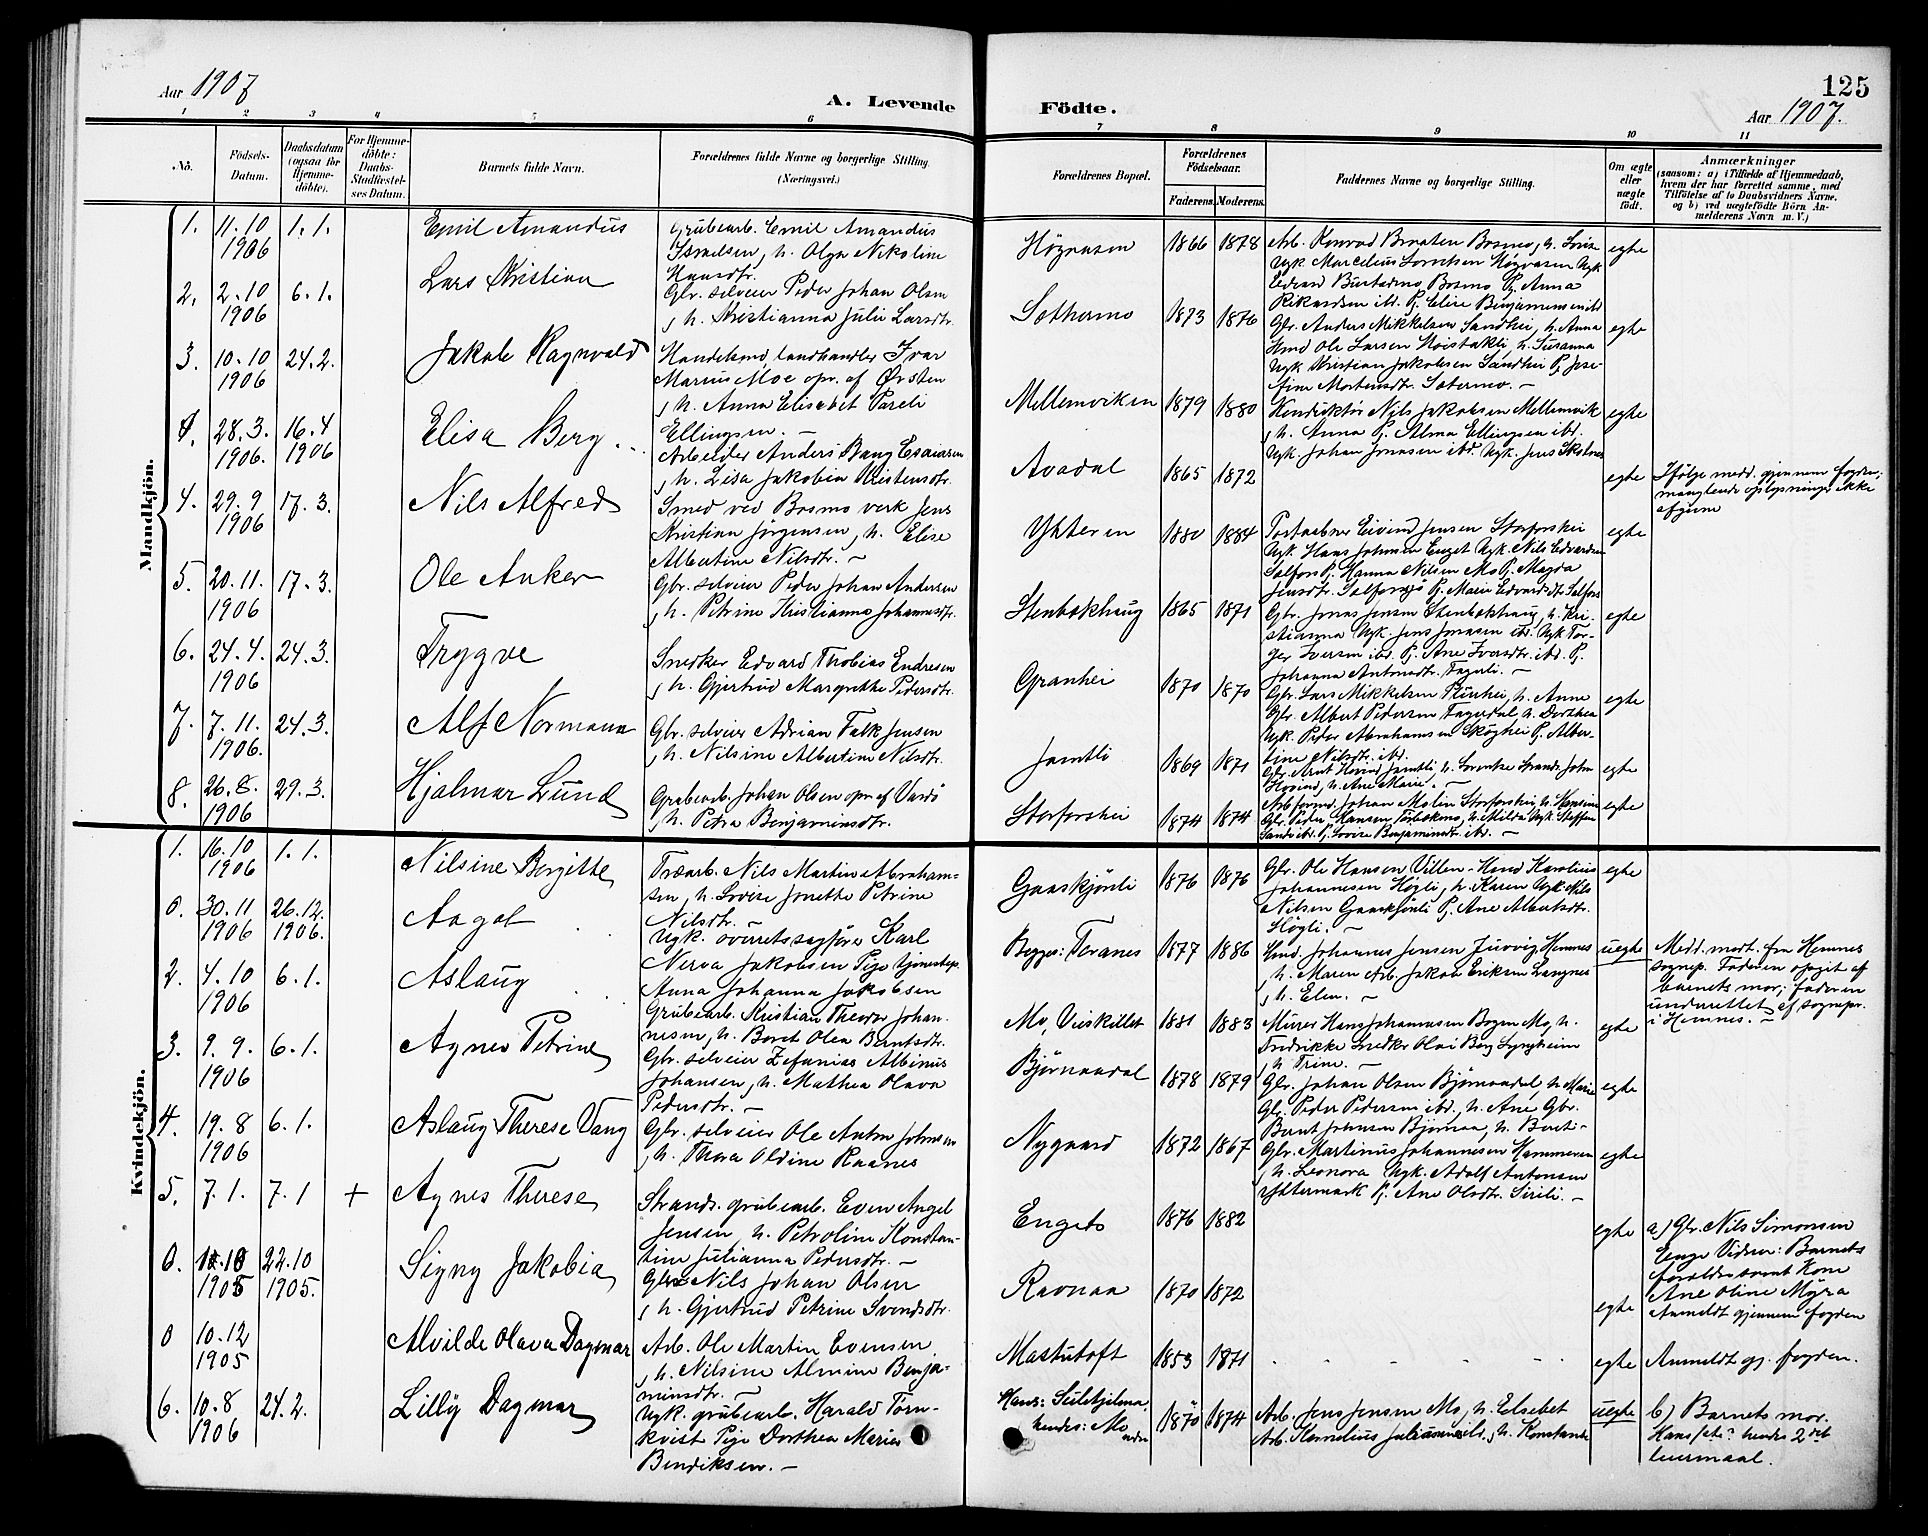 Aar 1907
A. Levende
Födte.
125
Aar 1907.
1 2 3 4 5 6 7 8 9 10 11
No. Födsels-Datum. Daabsdatum (ogsaa for Hjemmedöbte). For Hjemmedöbte: Daabs-Stadfæstelses Datum. Barnets fulde Navn. Forældrenes fulde Navne og borgerlige Stilling. (Næringsvei.) Forældrenes Bopæl. Forældrenes Födselsaar. Faderens. Moderens. Faddernes Navne og borgerlige Stilling. Om ægte eller uægte födt. Anmærkninger (saasom: a) i Tilfælde af Hjemmedaab, hvem der har forrettet samme, med Tilföielse af to Daabsvidners Navne, og b) ved uægtefödte Börn Anmelderens Navn m. V.)
Mandkjön.
1. 11.10 1906 1.1. Emil Amandus
Grubearb. Emil Amandus
Israelsen, h. Olga Nikoline
Hansdtr.
Høgaasen 1866 1878
Arb. Konrad Braaten Bosmo, h. Lovise
Ugk Marcelius Lorntsen Høgaasen Ugk
Edvard Bosmo Pj. Anna
Rikardsen ibd. Pj. Elise Benjaminsen ibd
egte
2. 2.10 1906 6.1. Lars Kristian
Gbr. selveier Peder Johan Olsen
, h. Kristianna Julie Larsdtr.
Sæthermo 1873 1876
Gbr. Anders Mikkelsen Sandhei, h. Anna
Hmd Ole Larsen h. Susanna
Ugk Kristian Jakobsen Sandhei Pj. Jose-
fine Mortensdtr. Sætermo. –
egte
3. 10.10 1906 24.2. Jakob Ragnvald
Handelsmd, landhandler Ivar
Marius Moe opr. af Ørsten
, h. Anna Elisabet Pareli
Ellingsen. –
Mellemviken 1879 1880
Konduktør Nils Jakobsen Mellemvik
, h. Anna Pj. Alma Ellingsen ibd.
Ugk. Johan Jonassen ibd. Ugk. Jens
egte
4. 28.3. 1906. 16.4 1906 Elisa Berg.
Arbeider Anders Bang Esaiassen
, h. Lisa Jakobia Kristensdtr.
Avadal 1865 1872
egte
Ifølge medd. gjennem fogden;
manglende oplysninger ikke
afgivne
4. 29.9 1906 17.3. Nils Alfred
Smed ved Bosmo verk Jens
Kristian Jørgensen, h. Elise
Albertine Nilsdtr. –
Ytteren 1880 1884
Postaabner Eivind Jensen Storforshei
Ugk. Hans Johnsen Enget Ugk. Nils Edvardsen
Salfors Pj. Hanna Nilsen Mo Pj. Magda
Jensdtr. Pj. Marie Edvardsdtr Salfors
egte
5. 20.11. 1906 17.3. Ole Anker
Gbr. selveier Peder Johan Andersen
, h. Petrine Kristianna Johannesdtr.
Stenbækhaug 1865 1871
Gbr. Jonas Jensen Stenbækhaug, h. Kri-
stianna Ugk. Jens Jonassen ibd. Ugk Tor-
ger Iversen ibd. Pj. Ane Iversdtr. ibd. Pj.
Johanna Antonsdtr. Fagerli. –
egte
6. 24.4. 1906 24.3. Trygve
Snedker Edvard Thobias Endresen
, h. Gjertrud Margrethe Pedersdtr.
Granhei 1870 1870
Gbr. Lars Mikkelsen h. Anne
Gbr. Albert Pedersen Fagerdal h. Dorthea
Ugk. Peder Abrahamsen Skoghei Pj. Alber-
tine Nilsdtr. ibd.
egte
7. 7.11. 1906. 24.3. Alf Normann
Gbr. selveier Adrian Falk Jensen
, h. Nilsine Albertine Nilsdtr.
Jamtli 1869 1871
Gbr. Arnt Hovind Jamtli, h. Lorentse John
Hovind, h. Ane Marie. –
egte
8. 26.8. 1906 29.3. Hjalmar Lund
Grubearb. Johan Olsen opr. af Vardø
, h. Petra Benjaminsdtr.
Storforshei 1874 1874
Arb.formd. Johan Molin Storforshei, h. Hansine
Gbr. Peder Hansen h. Milda Ugk. Steffen
ibd. Pj. Lovise Benjaminsdtr. ibd. –
egte
Kvindekjön.
1. 16.10 1906 1.1. Nilsine Bergitte
Træarb. Nils Martin Abraham-
sen, h. Lovise Jonette Petrine
Nilsdtr. –
Gaaskjønli 1876 1876
Gbr. Ole Hansen Villen. Hmd Karolius
Johannesen Høgli, h. Karen Ugk. Nils
Nilsen Gaaskjønli Pj. Ane Albertsdtr.
Høgli. –
egte
0. 30.11 1906 26.12. 1906. Aagot
Ugk. overretssagfører Karl
Nerva Jakobsen Pige tjenestep.
Anna Johanna Jakobsen
Begges: Teranes 1877 1886
Hmd. Johannes Jensen Juvvig, Hemnes
, h. Maren Arb. Jakob Eriksen Langnes
, h. Elen. –
uegte
Medd. modt. fra Hemnes
sognep. Faderen opgit af
barnets mor; faderen
underrettet af sognepr.
i Hemnes. –
2. 4.10 1906 6.1. Aslaug
Grubearb. Kristian Theodor Johan-
nesen, h. Beret Olea Berntsdtr.
Mo, Veiskillet 1881 1883
Murer Hans Johannesen Bogen Mo, h.
Fredrikke Snedker Olai Berg Lyngheim
, h. Trine. –
egte
3. 9.9. 1906 6.1. Agnes Petrine
Gbr. selveier Zefanias Albinus
Johansen, h. Mathea Olava
Pedersdtr. –
Bjørnaadal 1878 1879
Gbr. Johan Olsen Bjørnaadal, h. Marie
Gbr. Peder Pedersen ibd., h. Ane Gbr.
Bernt Johansen Bjørnaa, h. Berit –
egte
4. 19.8 1906 6.1. Aslaug Therese Vang
Gbr. selveier Ole Anton Johnsen
, h. Thora Oldine Raanes
Nygaard 1872 1867
Gbr. Martinus Johannesen Hammeren
, h. Leonora Ugk. Adolf Antonsen
Yttermark Pj. Ane Olsdtr. Sirili. –
egte
5. 7.1. 7.1 + Agnes Therese
Strands. grubearb. Even Angel
Jensen, h. Petroline Konstan-
tine Julianna Pedersdtr. –
Enget 1876 1882
egte
a) Gbr. Nils Simonsen
Enge Vidner: Barnets
forældre samt Kone
Ane Oline Myra
0. 11.10 1905 22.10 1905. Signy Jakobia
Gbr. Nils Johan Olsen
, h. Gjertrud Petrine Svendsdtr.
Ravnaa 1870 1872
egte
Anmeldt gjennem fogden
0 10.12 1905 Alvilde Olava Dagmar
Arb. Ole Martin Evensen
, h. Nilsine Almine Benja-
minsdtr. –
Mastutoft 1853 1871
egte
Anmeldt gj. fogden.
6. 10.8 1906 24.2. Lilly Dagmar
Ugk. grubearb. Harald Törn-
kvist Pige Dorthea Marie
Bendiksen. –
Hans:
hendes: Mo
1870 1874
Arb. Jens Jensen Mo, h. Elsebet
Arb. Kornelius Julianus ibd., h. Konstanse
uegte
b) Barnets mor.
Hans hendes 2det
leiermaal.